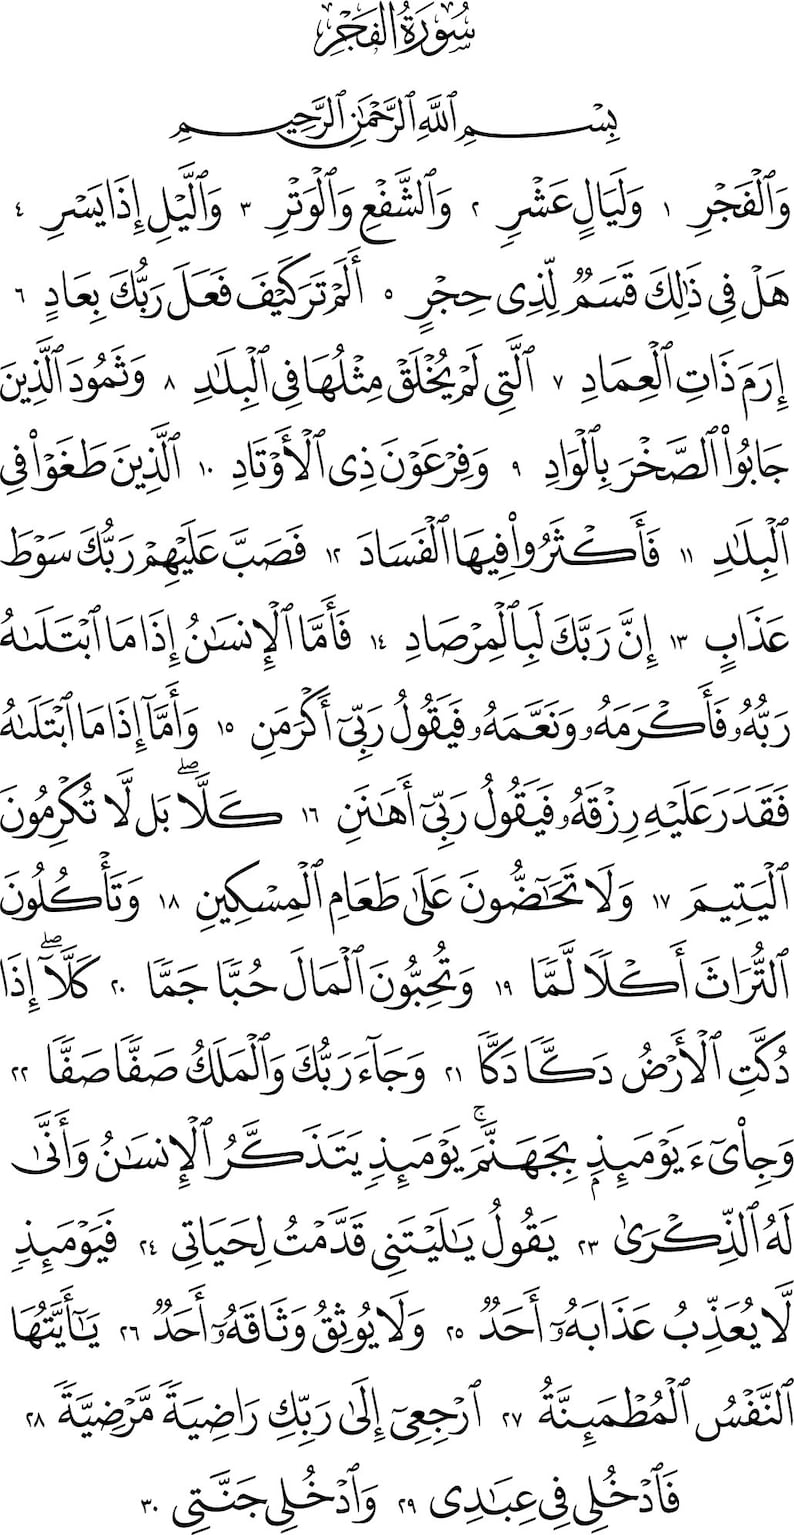 سُورَةُ الفَجْرِ
بِسْمِ ٱللَّهِ ٱلرَّحْمَٰنِ ٱلرَّحِيمِ
وَٱلْفَجْرِ ١ وَلَيَالٍ عَشْرٍ ٢ وَٱلشَّفْعِ وَٱلْوَتْرِ ٣ وَٱلَّيْلِ إِذَا يَسْرِ ٤
هَلْ فِى ذَٰلِكَ قَسَمٌ لِّذِى حِجْرٍ ٥ أَلَمْ تَرَ كَيْفَ فَعَلَ رَبُّكَ بِعَادٍ ٦
إِرَمَ ذَاتِ ٱلْعِمَادِ ٧ ٱلَّتِى لَمْ يُخْلَقْ مِثْلُهَا فِى ٱلْبِلَٰدِ ٨ وَثَمُودَ ٱلَّذِينَ
جَابُوا۟ ٱلصَّخْرَ بِٱلْوَادِ ٩ وَفِرْعَوْنَ ذِى ٱلْأَوْتَادِ ١٠ ٱلَّذِينَ طَغَوْا۟ فِى
ٱلْبِلَٰدِ ١١ فَأَكْثَرُوا۟ فِيهَا ٱلْفَسَادَ ١٢ فَصَبَّ عَلَيْهِمْ رَبُّكَ سَوْطَ
عَذَابٍ ١٣ إِنَّ رَبَّكَ لَبِٱلْمِرْصَادِ ١٤ فَأَمَّا ٱلْإِنسَٰنُ إِذَا مَا ٱبْتَلَىٰهُ
رَبُّهُۥ فَأَكْرَمَهُۥ وَنَعَّمَهُۥ فَيَقُولُ رَبِّىٓ أَكْرَمَنِ ١٥ وَأَمَّآ إِذَا مَا ٱبْتَلَىٰهُ
فَقَدَرَ عَلَيْهِ رِزْقَهُۥ فَيَقُولُ رَبِّىٓ أَهَٰنَنِ ١٦ كَلَّا ۖ بَل لَّا تُكْرِمُونَ
ٱلْيَتِيمَ ١٧ وَلَا تَحَٰٓضُّونَ عَلَىٰ طَعَامِ ٱلْمِسْكِينِ ١٨ وَتَأْكُلُونَ
ٱلتُّرَاثَ أَكْلًا لَّمًّا ١٩ وَتُحِبُّونَ ٱلْمَالَ حُبًّا جَمًّا ٢٠ كَلَّآ ۖ إِذَا
دُكَّتِ ٱلْأَرْضُ دَكًّا دَكًّا ٢١ وَجَآءَ رَبُّكَ وَٱلْمَلَكُ صَفًّا صَفًّا ٢٢
وَجِا۟ىٓءَ يَوْمَئِذٍۭ بِجَهَنَّمَ ۚ يَوْمَئِذٍ يَتَذَكَّرُ ٱلْإِنسَٰنُ وَأَنَّىٰ
لَهُ ٱلذِّكْرَىٰ ٢٣ يَقُولُ يَٰلَيْتَنِى قَدَّمْتُ لِحَيَاتِى ٢٤ فَيَوْمَئِذٍ
لَّا يُعَذِّبُ عَذَابَهُۥٓ أَحَدٌ ٢٥ وَلَا يُوثِقُ وَثَاقَهُۥٓ أَحَدٌ ٢٦ يَٰٓأَيَّتُهَا
ٱلنَّفْسُ ٱلْمُطْمَئِنَّةُ ٢٧ ٱرْجِعِىٓ إِلَىٰ رَبِّكِ رَاضِيَةً مَّرْضِيَّةً ٢٨
فَٱدْخُلِى فِى عِبَٰدِى ٢٩ وَٱدْخُلِى جَنَّتِى ٣٠